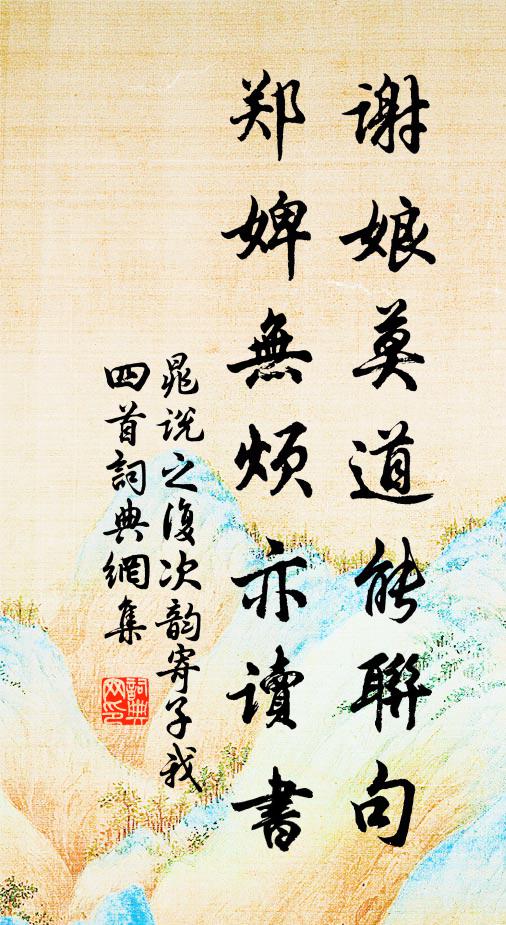 谢娘莫道能聯句
郑婢無煩亦讀書
晁说之復次韵寄子我
四首詞典網集
詞典
网印